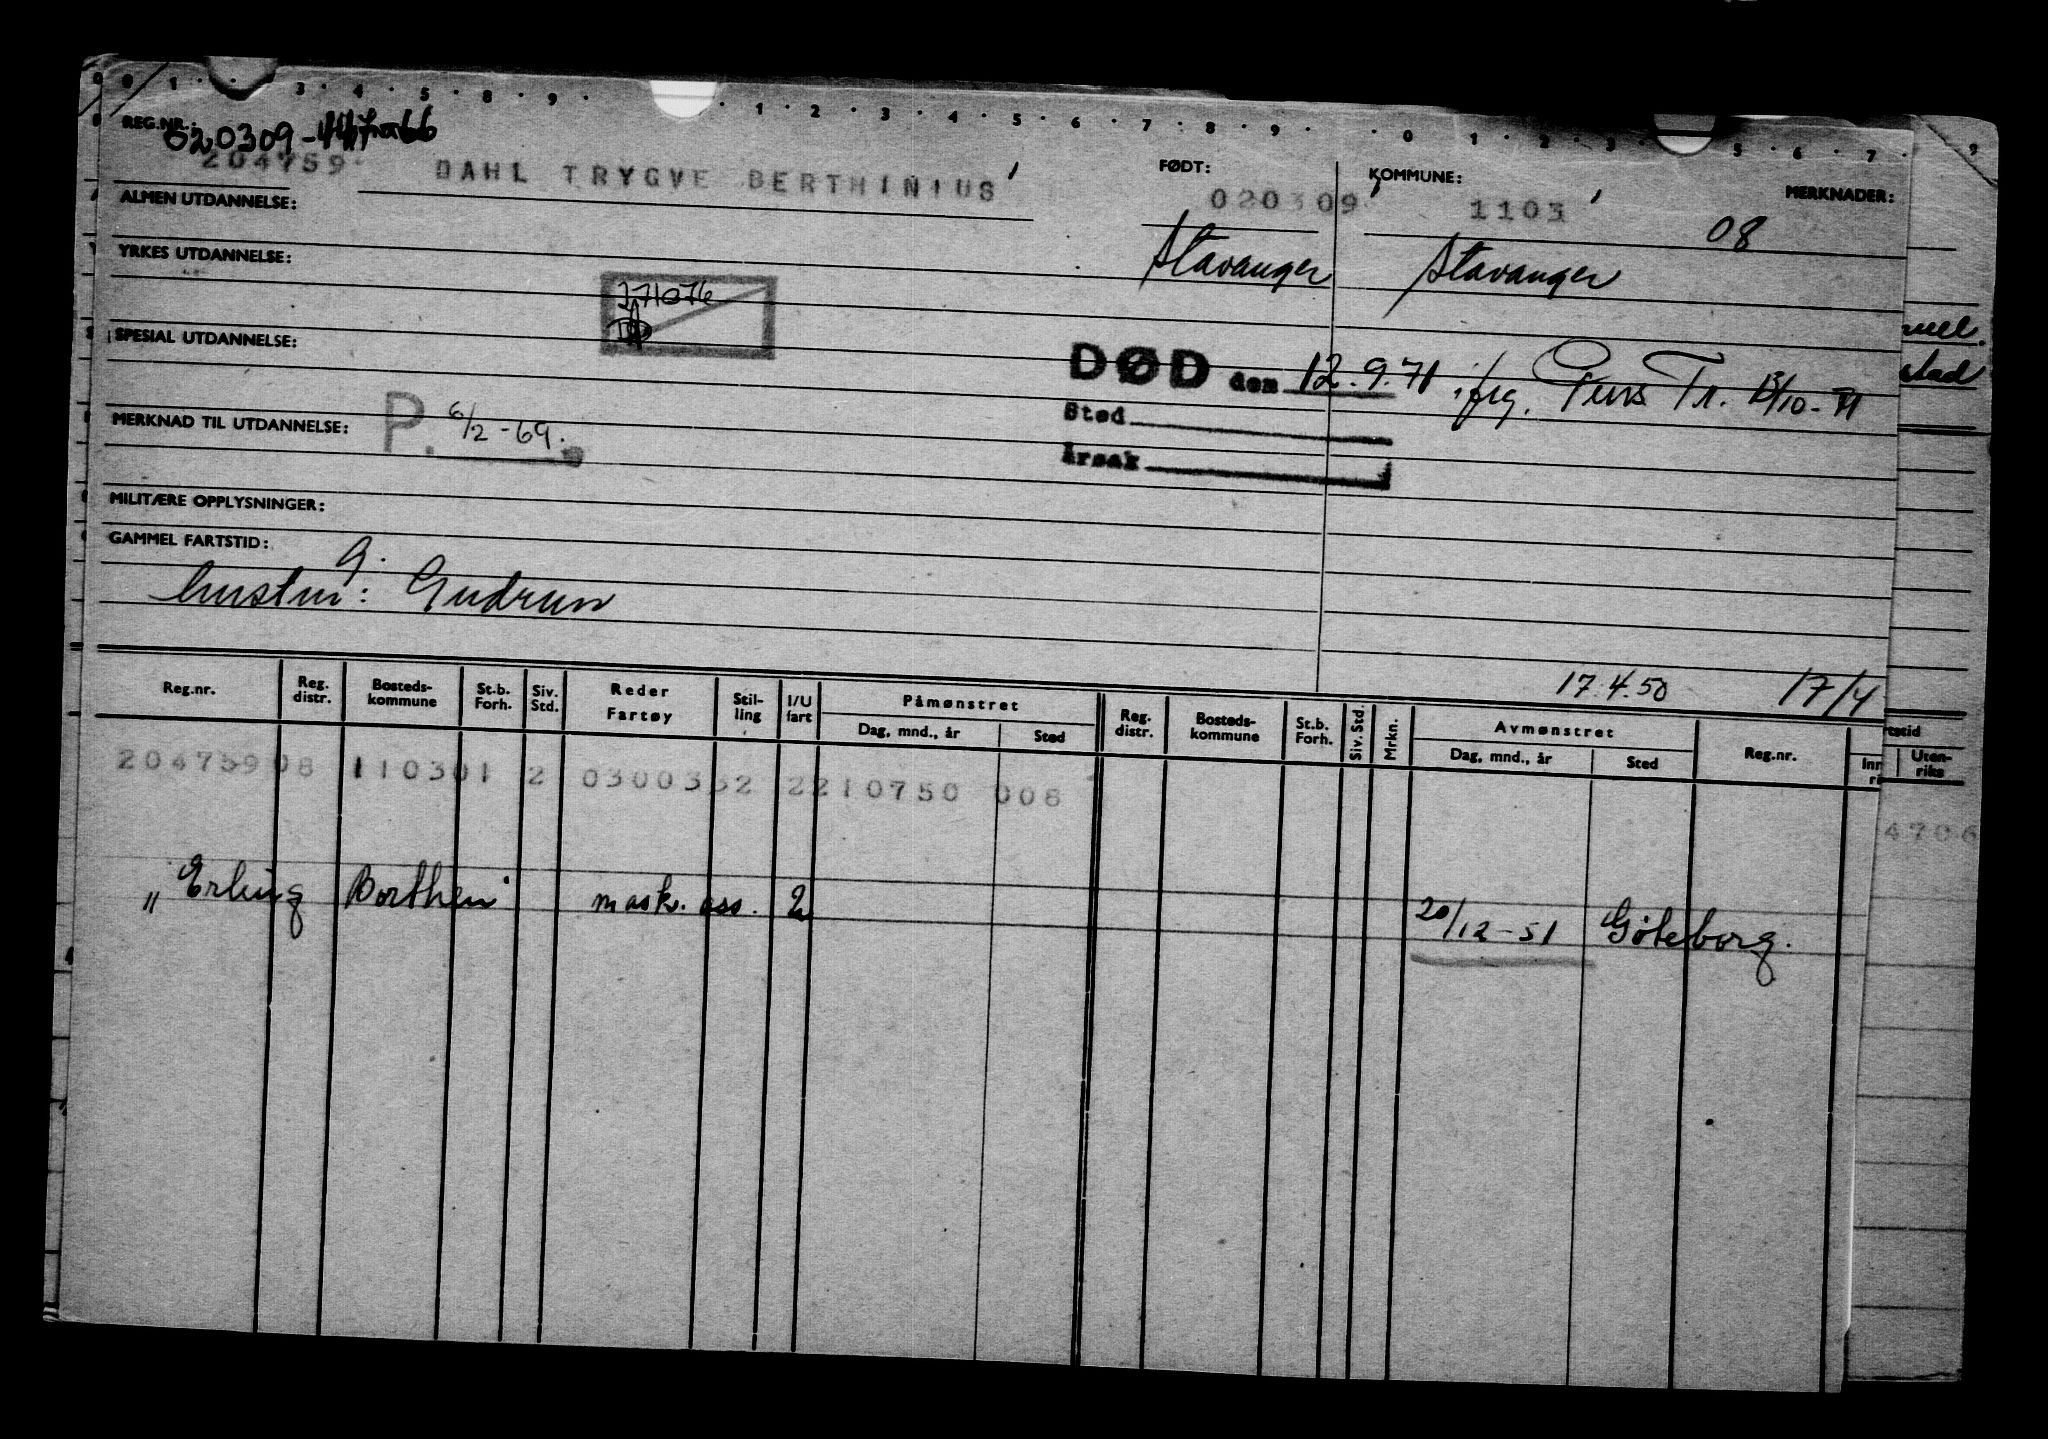 REG.NR.: 020309-
204759 DAHL TRYGVE BERTHINIUS FØDT: 020309 KOMMUNE: 1103 MERKNADER:
ALMEN UTDANNELSE: 08
YRKES UTDANNELSE: Stavanger Stavanger
271076
SPESIAL UTDANNELSE: DØD den 12.9.71 ifrg. Pens. Tr. 13/10-71
MERKNAD TIL UTDANNELSE: P. 6/2-69. Sted
Årsak
MILITÆRE OPPLYSNINGER:
GAMMEL FARTSTID: G.
hustru: Gudrun
17.4.50 17/4
Reg.nr. Reg. distr. Bosteds-kommune St.b. Forh. Siv. Std. Reder Fartøy Stil-ling I/U fart Påmønstret Dag, mnd., år Sted Reg. distr. Bosteds-kommune St.b. Forh. Siv. Std. Mrkn. Avmønstret Dag, mnd., år Sted Reg.nr. Uten-riks
204759 08 1103 01 2 0300352 2 210750 006
4706
" Erling Borthen" mask. ass. 2 20/12-51 Göteborg.